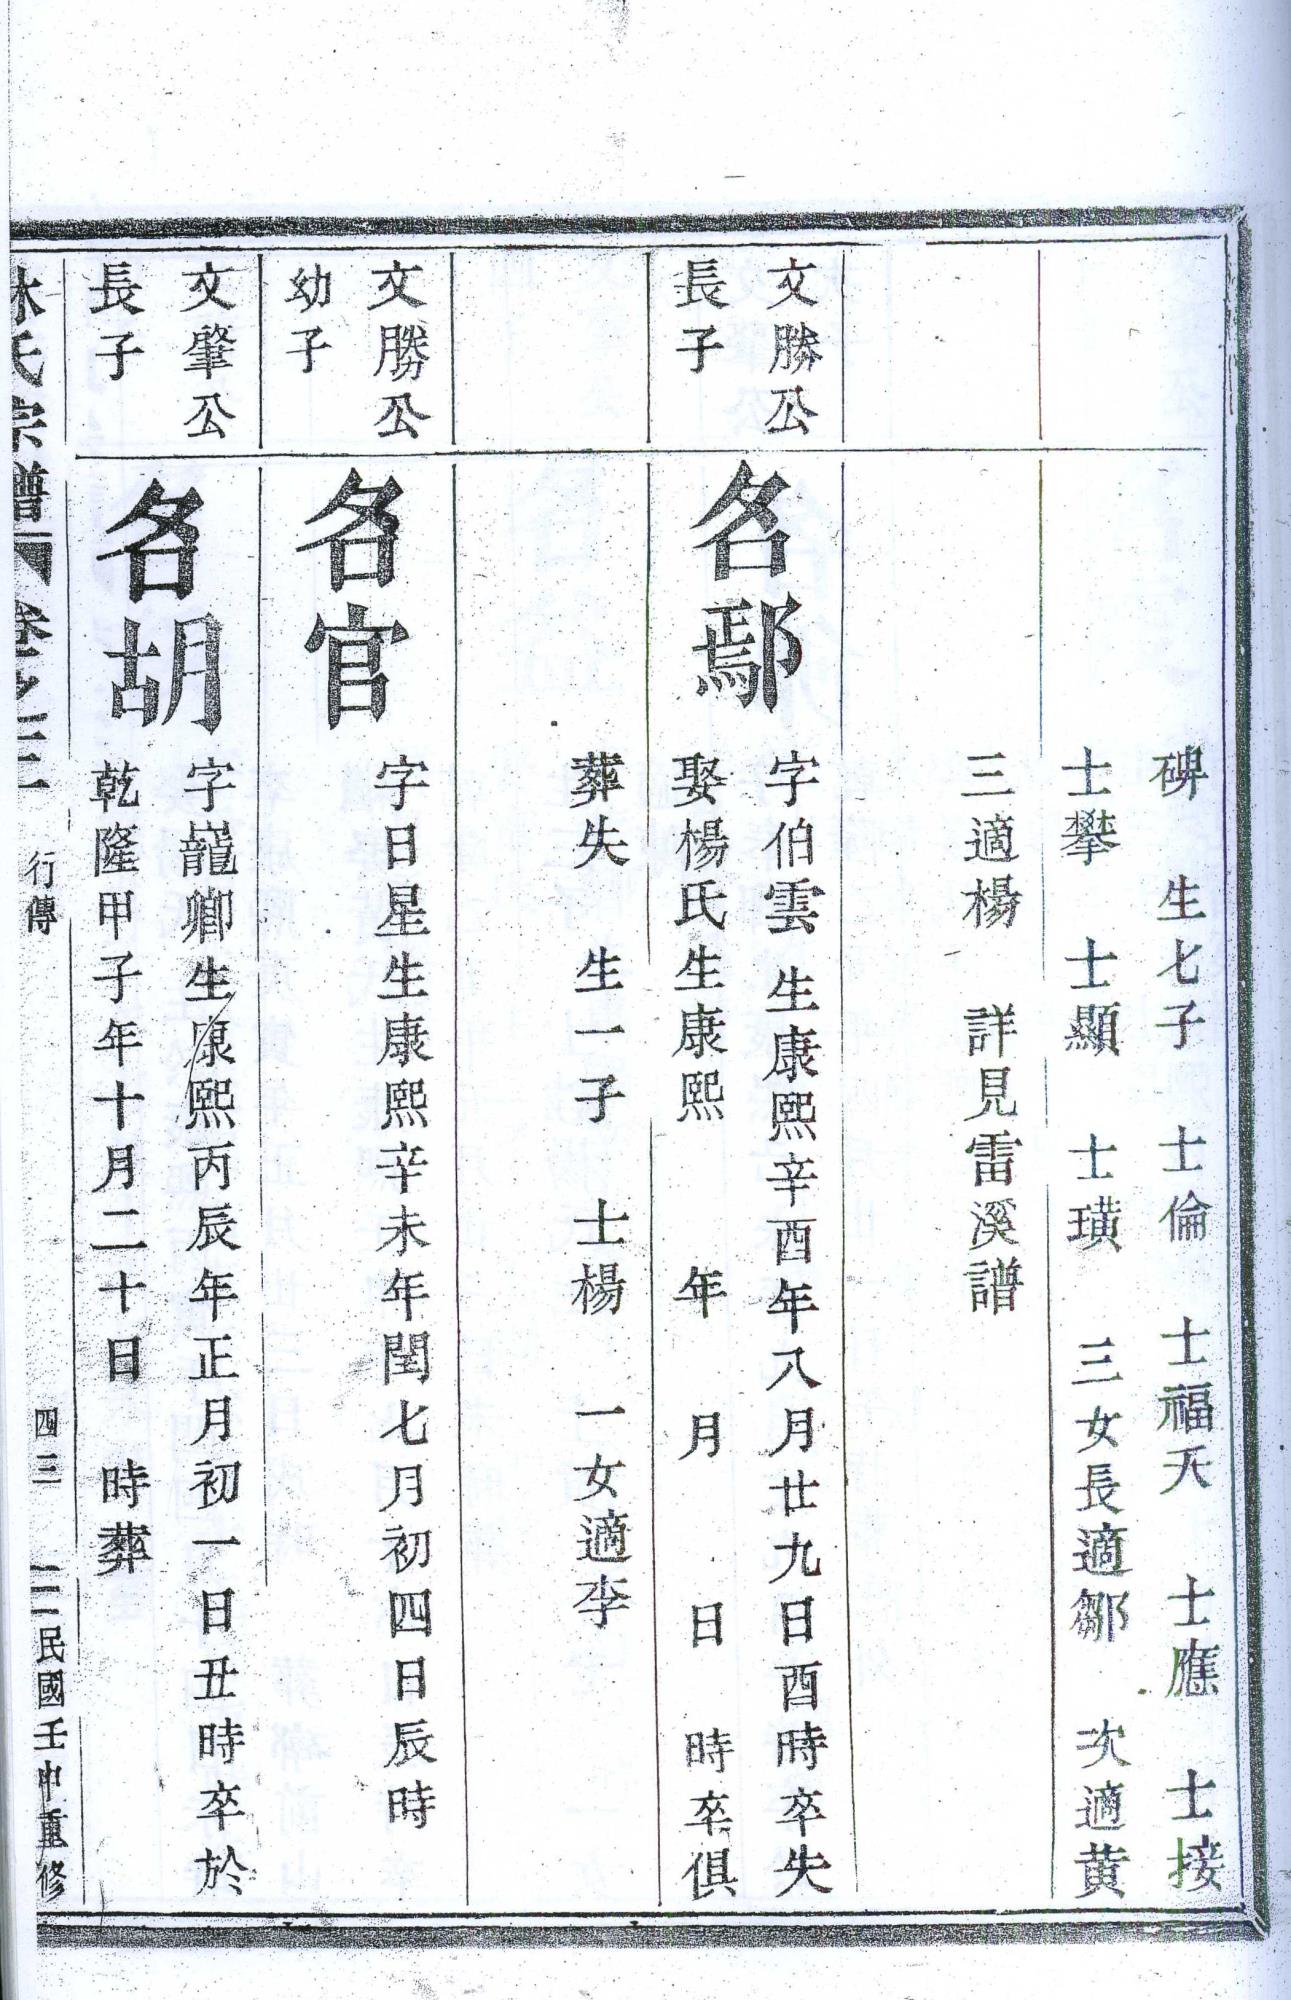 碑　生七子　士倫　士福夭　士應　士接
士攀　士顯　士璜　三女長適鄒　次適黄
三適楊　詳見雷溪譜
文勝公
長子
名鄢
字伯雲　生康熙辛酉年八月廿九日酉時卒失
娶楊氏生康熙　年　月　日　時卒俱
葬失　生一子　士楊　一女適李
文勝公
幼子
名官
字日星生康熙辛未年閏七月初四日辰時
文肇公
長子
名胡
字巃卿生康熙丙辰年正月初一日丑時卒於
乾隆甲子年十月二十日　時葬
林氏宗譜　卷之三　行傳　四三　民國壬申重修